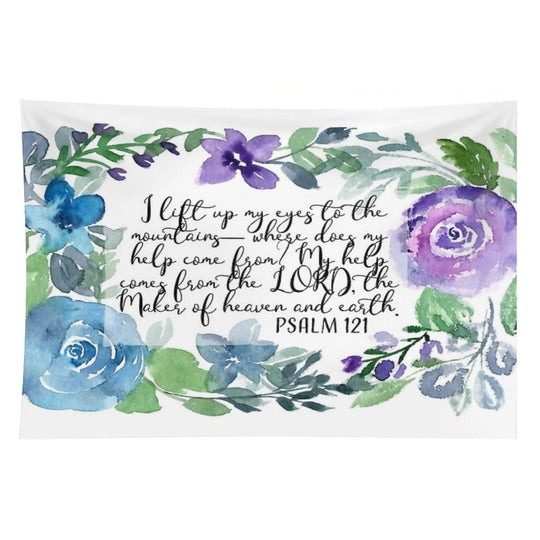 I lift up my eyes to the
mountains— where does my
help come from? My help
comes from the LORD, the
Maker of heaven and earth.
PSALM 121